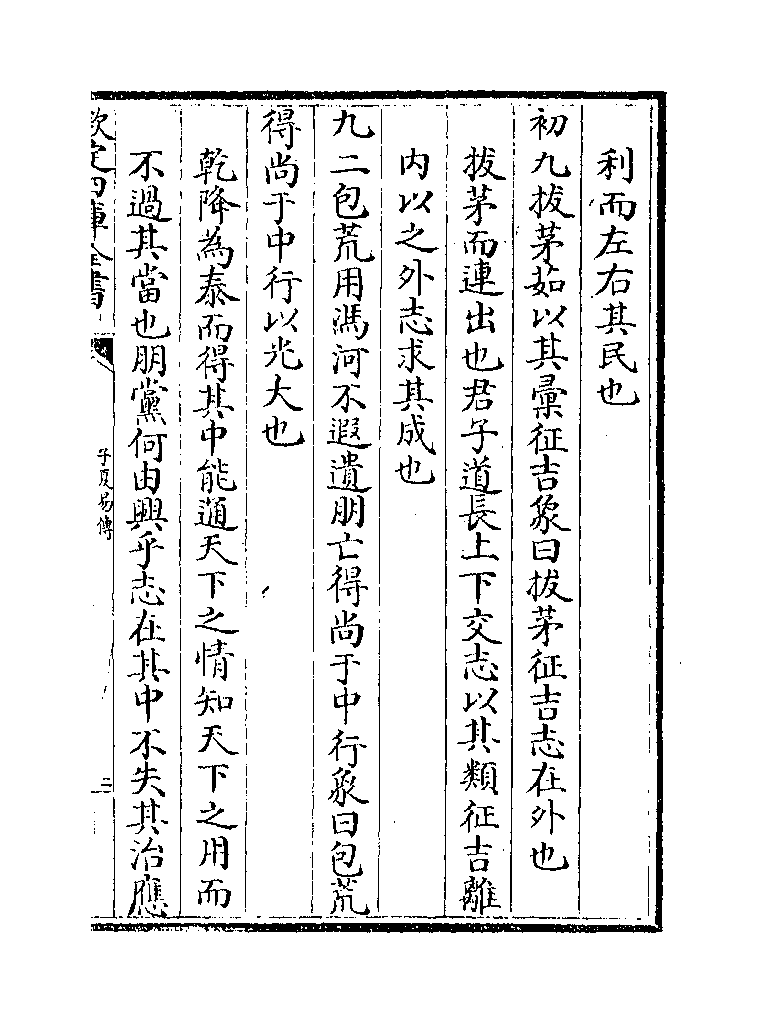 利而左右其民也
初九拔茅茹以其彙征吉象曰拔茅征吉志在外也
拔茅而連出也君子道長上下交志以其類征吉離
内以之外志求其成也
九二包荒用馮河不遐遺朋亡得尚于中行象曰包荒
得尚于中行以光大也
乾降為泰而得其中能通天下之情知天下之用而
不過其當也朋黨何由興乎志在其中不失其治應
欽定四庫全書
子夏易傳
三